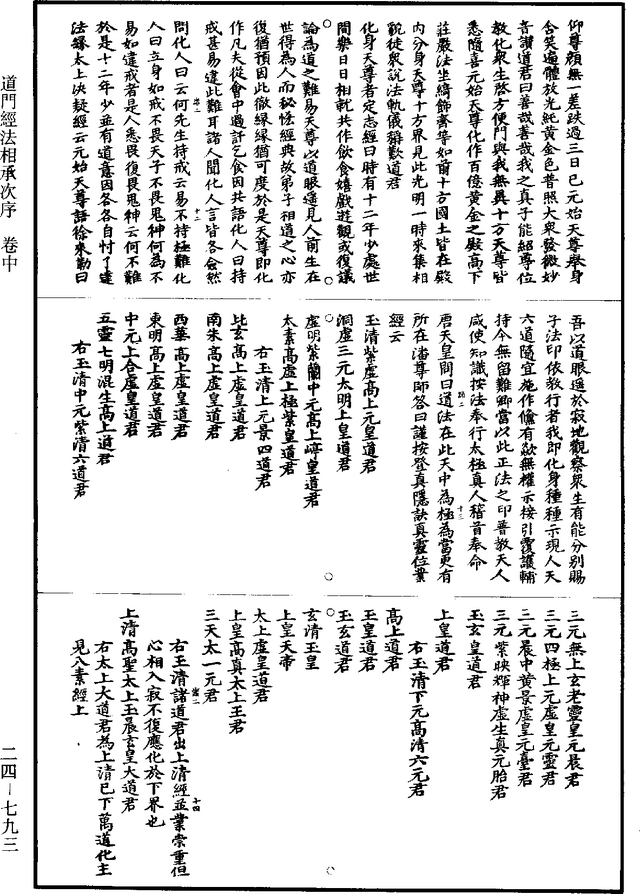 仰尊顏無一差跌過三日已元始天尊舉身
含笑遍體放光純黃金色普照大衆發微妙
音讚道君曰善哉善哉我之真子能紹尊位
教化衆生啓方便門與我無異十方天尊皆
悉隨喜元始天尊化作百億黃金之殿高下
莊嚴法坐綺飾齊等如前十方國土皆在殿
內分身天尊十方界見此光明一時來集相
觀徒衆說法軌儀稱歎道君
化身天尊者定志經曰時有十二年少處世
間樂日日相就共作飲食嬉戲遊觀或復議
論為道之難易天尊以道眼遙見人前生在
世得為人而秘恡經典故弟子相道之心亦
復猶預因此徹緣緣猶可度於是天尊即化
作凡夫從會中過訐乞食因共語化人曰持
戒甚易違此難耳諸人聞化人言皆各僉然
問化人曰云何先生持戒云易不持極難化
人曰立身如戒不畏天子不畏鬼神何為不
易如違戒者是人悉畏復畏鬼神云何不難
於是十二年少並有道意因各各自忖了達
法緣太上決疑經云元始天尊語徐來勒曰
吾以道眼遥於寂地觀察衆生有能分別賜
子法印依教行者我即化身種種示現人天
六道隨宜施作儋有歘無權示接引覆護輔
持今無留難卿當以此正法之印普教天人
咸使知識按法奉行太極真人稽首奉命
唐天皇問曰道法在此天中為極為當更有
所在潘尊師答曰謹按登真隱訣真靈位業
經云
玉清紫虛高上元皇道君
洞虛三元太明上皇道君
虛明紫蘭中元高上崝皇道君
太素高虛上極紫皇道君
右玉清上元景四道君
比玄高上虛皇道君
南朱高上虛皇道君
西華高上虛皇道君
東明高上虛皇道君
中元上合虛皇道君
五靈七明混生高上道君
右玉清中元紫清六道君
三元無上玄老靈皇元晨君
三元四極上元虛皇元靈君
三元晨中黃景虛皇元臺君
三元紫映輝神虛生真元胎君
玉玄皇道君
上皇道君
右玉清下元高清六元君
高上道君
玉皇道君
玉玄道君
玄清玉皇
上皇天帝
太上虛皇道君
上皇高真太上王君
三天太一元君
右玉清諸道君出上清經並業崇重但
心相入寂不復應化於下界也
上清高聖太上玉晨玄皇大道君
右太上大道君為上清已下萬道化主
見八素經上
道門經法相承次序 卷中
二四－七九三